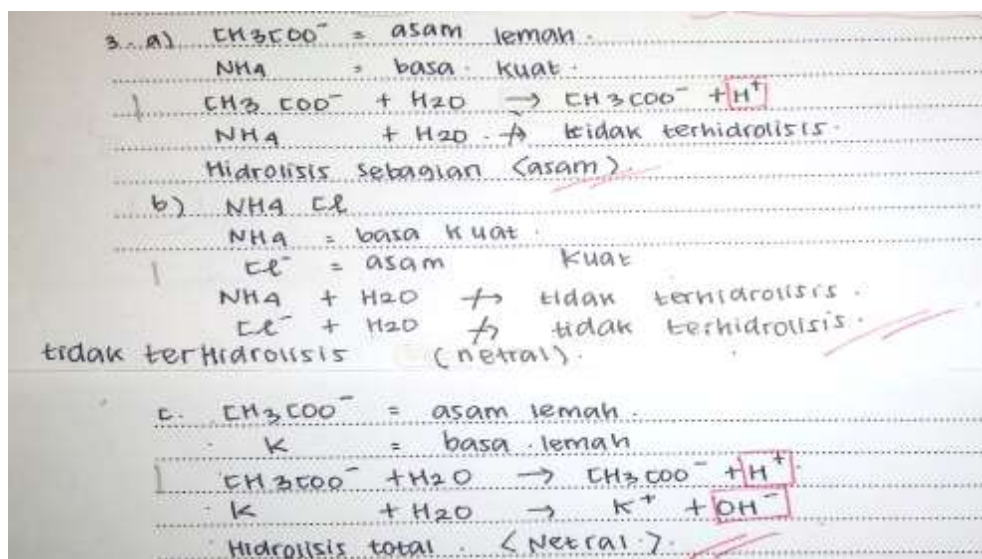 3. a) CH3COO⁻ = asam lemah.
NH4 = basa kuat.
CH3COO⁻ + H2O → CH3COO⁻ + H⁺
NH4 + H2O ↛ tidak terhidrolisis.
Hidrolisis sebagian (asam).
b) NH4Cl
NH4 = basa kuat.
Cl⁻ = asam kuat
NH4 + H2O ↛ tidak terhidrolisis.
Cl⁻ + H2O ↛ tidak terhidrolisis.
tidak terHidrolisis (netral).
c. CH3COO⁻ = asam lemah.
K = basa lemah
CH3COO⁻ + H2O → CH3COO⁻ + H⁺.
K + H2O → K⁺ + OH⁻
Hidrolisis total. (Netral.).